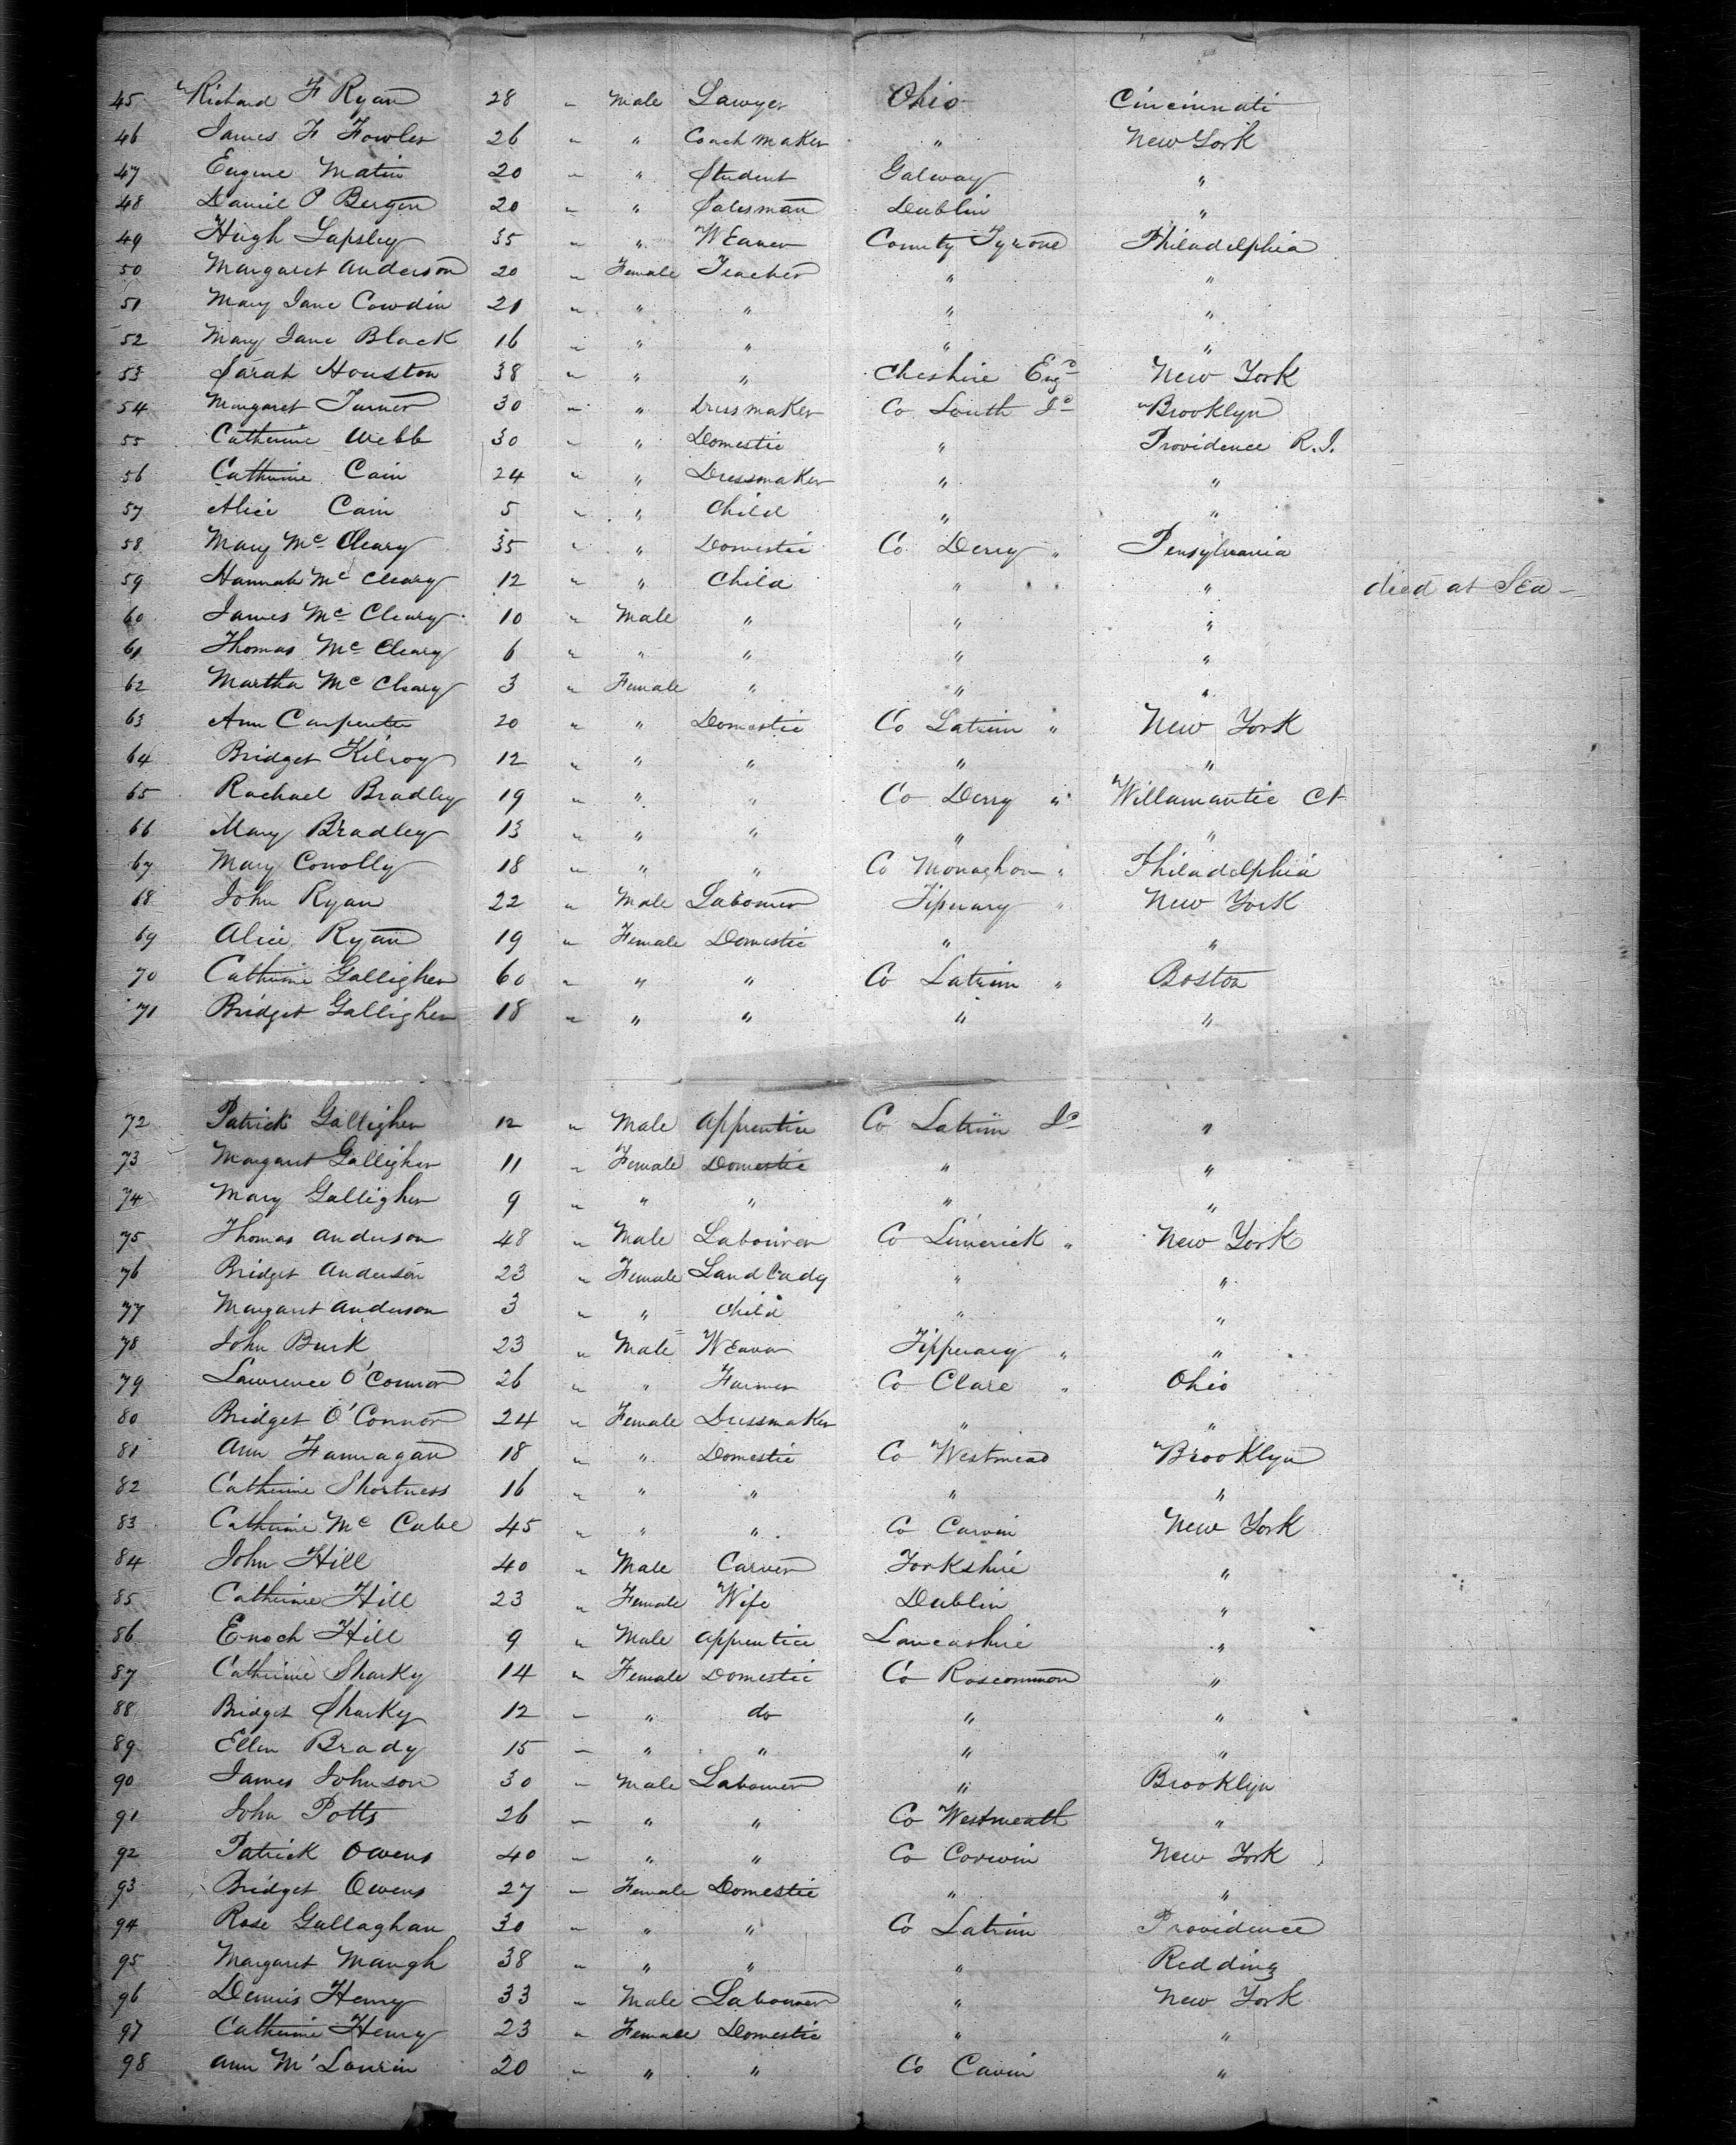 45 Richard F Ryan 28 " Male Lawyer Ohio Cincinnati
46 James F Fowler 26 " " Coach maker " New York
47 Eugene Matin 20 " " Student Galway "
48 Daniel P Bergen 20 " " Salesman Dublin "
49 Hugh Lapsley 35 " " Weaver County Tyrone Philadelphia
50 Margaret Anderson 20 " Female Teacher " "
51 Mary Jane Cowdin 21 " " " " "
52 Mary Jane Black 16 " " " " "
53 Sarah Houston 38 " " " Cheshire Engd New York
54 Margaret Turner 30 " " Dressmaker Co Louth Id Brooklyn
55 Catherine Webb 30 " " Domestic " Providence R.I.
56 Catherine Cain 24 " " Dressmaker " "
57 Alice Cain 5 " " Child " "
58 Mary Mc Cleary 35 " " Domestic Co Derry " Pensylvania
59 Hannah Mc Cleary 12 " " Child " " died at Sea -
60 James Mc Cleary 10 " Male " " "
61 Thomas Mc Cleary 6 " " " " "
62 Martha Mc Cleary 3 " Female " " "
63 Ann Carpenter 20 " " Domestic Co Latrim " New York
64 Bridget Kilroy 12 " " " " "
65 Rachael Bradley 19 " " " Co Derry " Willamantic Ct
66 Mary Bradley 13 " " " " "
67 Mary Conolly 18 " " " Co Monaghon " Philadelphia
68 John Ryan 22 " Male Labourer Tiperary " New York
69 Alice Ryan 19 " Female Domestic " "
70 Catherine Galligher 60 " " " Co Latrim " Boston
71 Bridget Galligher 18 " " " " "
72 Patrick Galligher 12 " Male Apprentice Co Latrim Id "
73 Margaret Galligher 11 " Female Domestic " "
74 Mary Galligher 9 " " " " "
75 Thomas Anderson 48 " Male Labourer Co Limerick " New York
76 Bridget Anderson 23 " Female Land Lady " "
77 Margaret Anderson 3 " " Child " "
78 John Burk 23 " Male Weaver Tipperary " "
79 Lawrence O'Connor 26 " " Farmer Co Clare " Ohio
80 Bridget O'Connor 24 " Female Dressmaker " "
81 Ann Fannagan 18 " " Domestic Co Westmead Brooklyn
82 Catherine Shortness 16 " " " " "
83 Catherine Mc Cabe 45 " " " Co Carvin New York
84 John Hill 40 " Male Carver Yorkshire "
85 Catherine Hill 23 " Female Wife Dublin "
86 Enoch Hill 9 " Male Apprentice Lancashire "
87 Catherine Sharky 14 " Female Domestic Co Roscommon "
88 Bridget Sharky 12 " " do " "
89 Ellen Brady 15 " " " " "
90 James Johnson 30 " Male Labourer " Brooklyn
91 John Potts 26 " " " Co Westmeath "
92 Patrick Owens 40 " " " Co Corwin New York
93 Bridget Owens 27 " Female Domestic " "
94 Rose Gallaghan 30 " " " Co Latrim Providence
95 Margaret Maugh 38 " " " " Redding
96 Dennis Henry 33 " Male Labourer " New York
97 Catherine Henry 23 " Female Domestic " "
98 Ann M'Lourin 20 " " " Co Cavin "